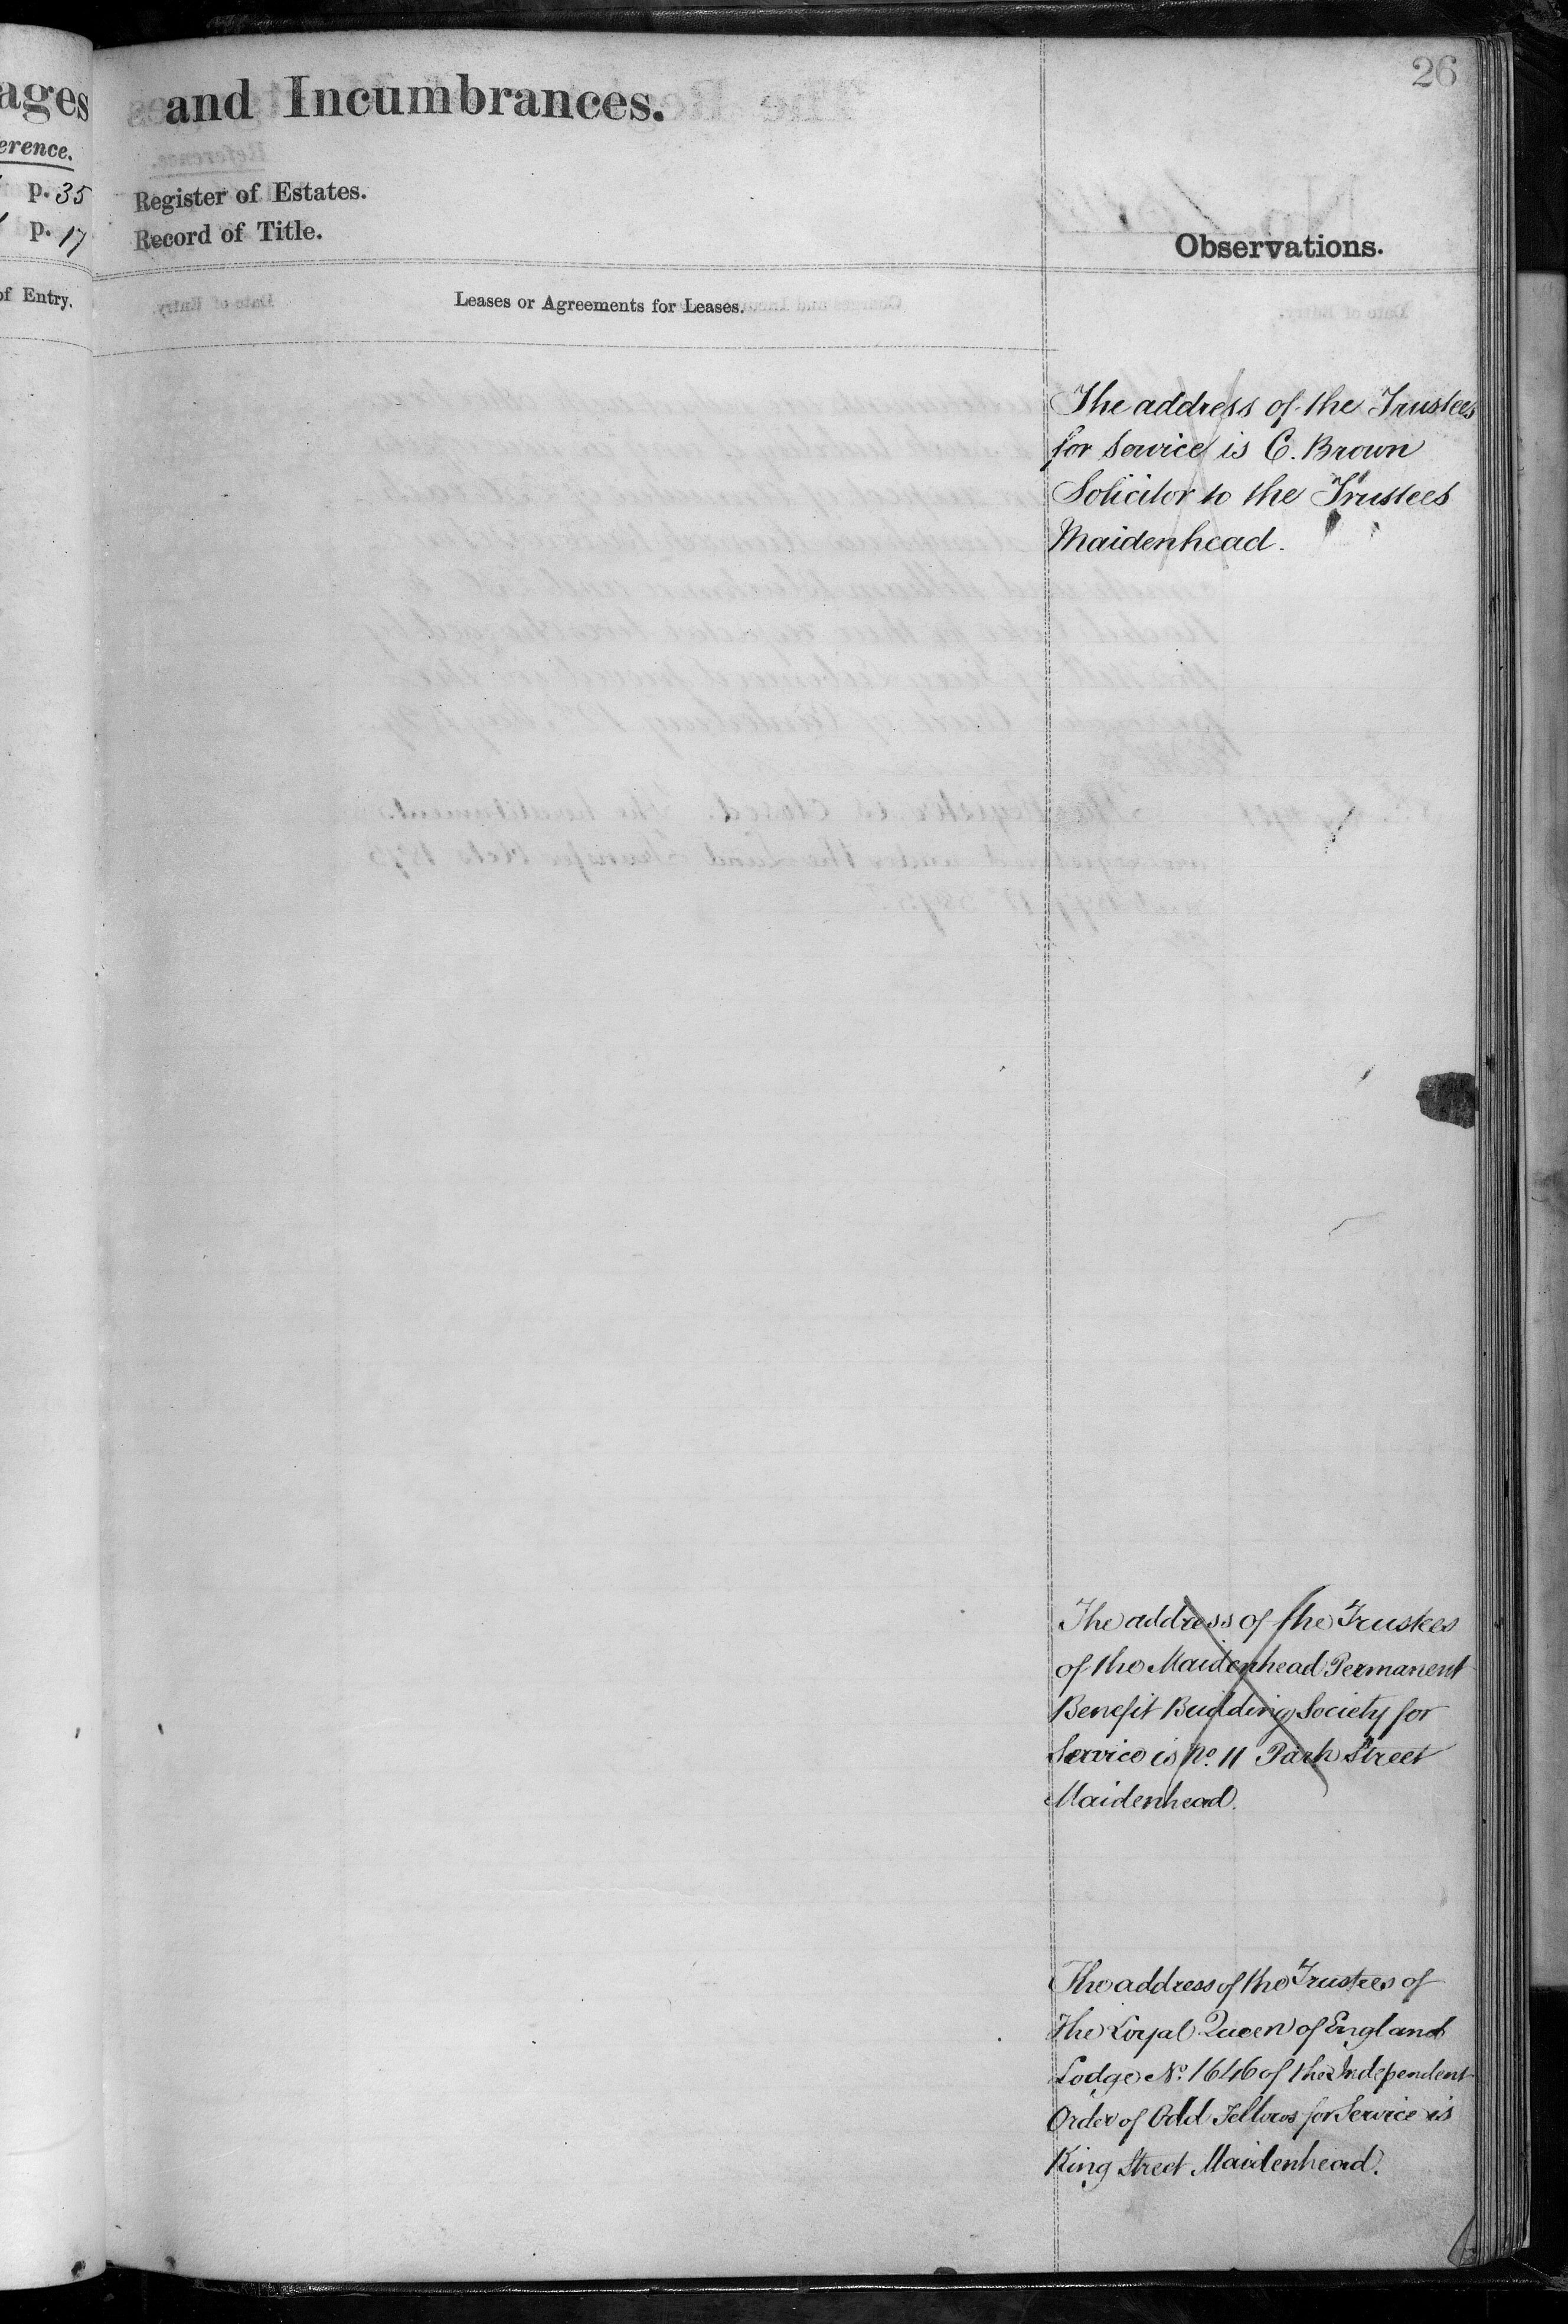 26
ages
and Incumbrances.
erence.
p. 35
Register of Estates.
p. 17
Record of Title.
Observations.
of Entry.
Leases or Agreements for Leases.
The address of the Trustees
for Service is C. Brown
Solicitor to the Trustees
Maidenhead.
The address of the Trustees
of the Maidenhead Permanent
Benefit Building Society for
Service is No. 11 Park Street
Maidenhead.
The address of the Trustees of
The Loyal Queen of England
Lodge No. 1646 of the Independent
Order of Odd Fellows for Service is
King Street Maidenhead.